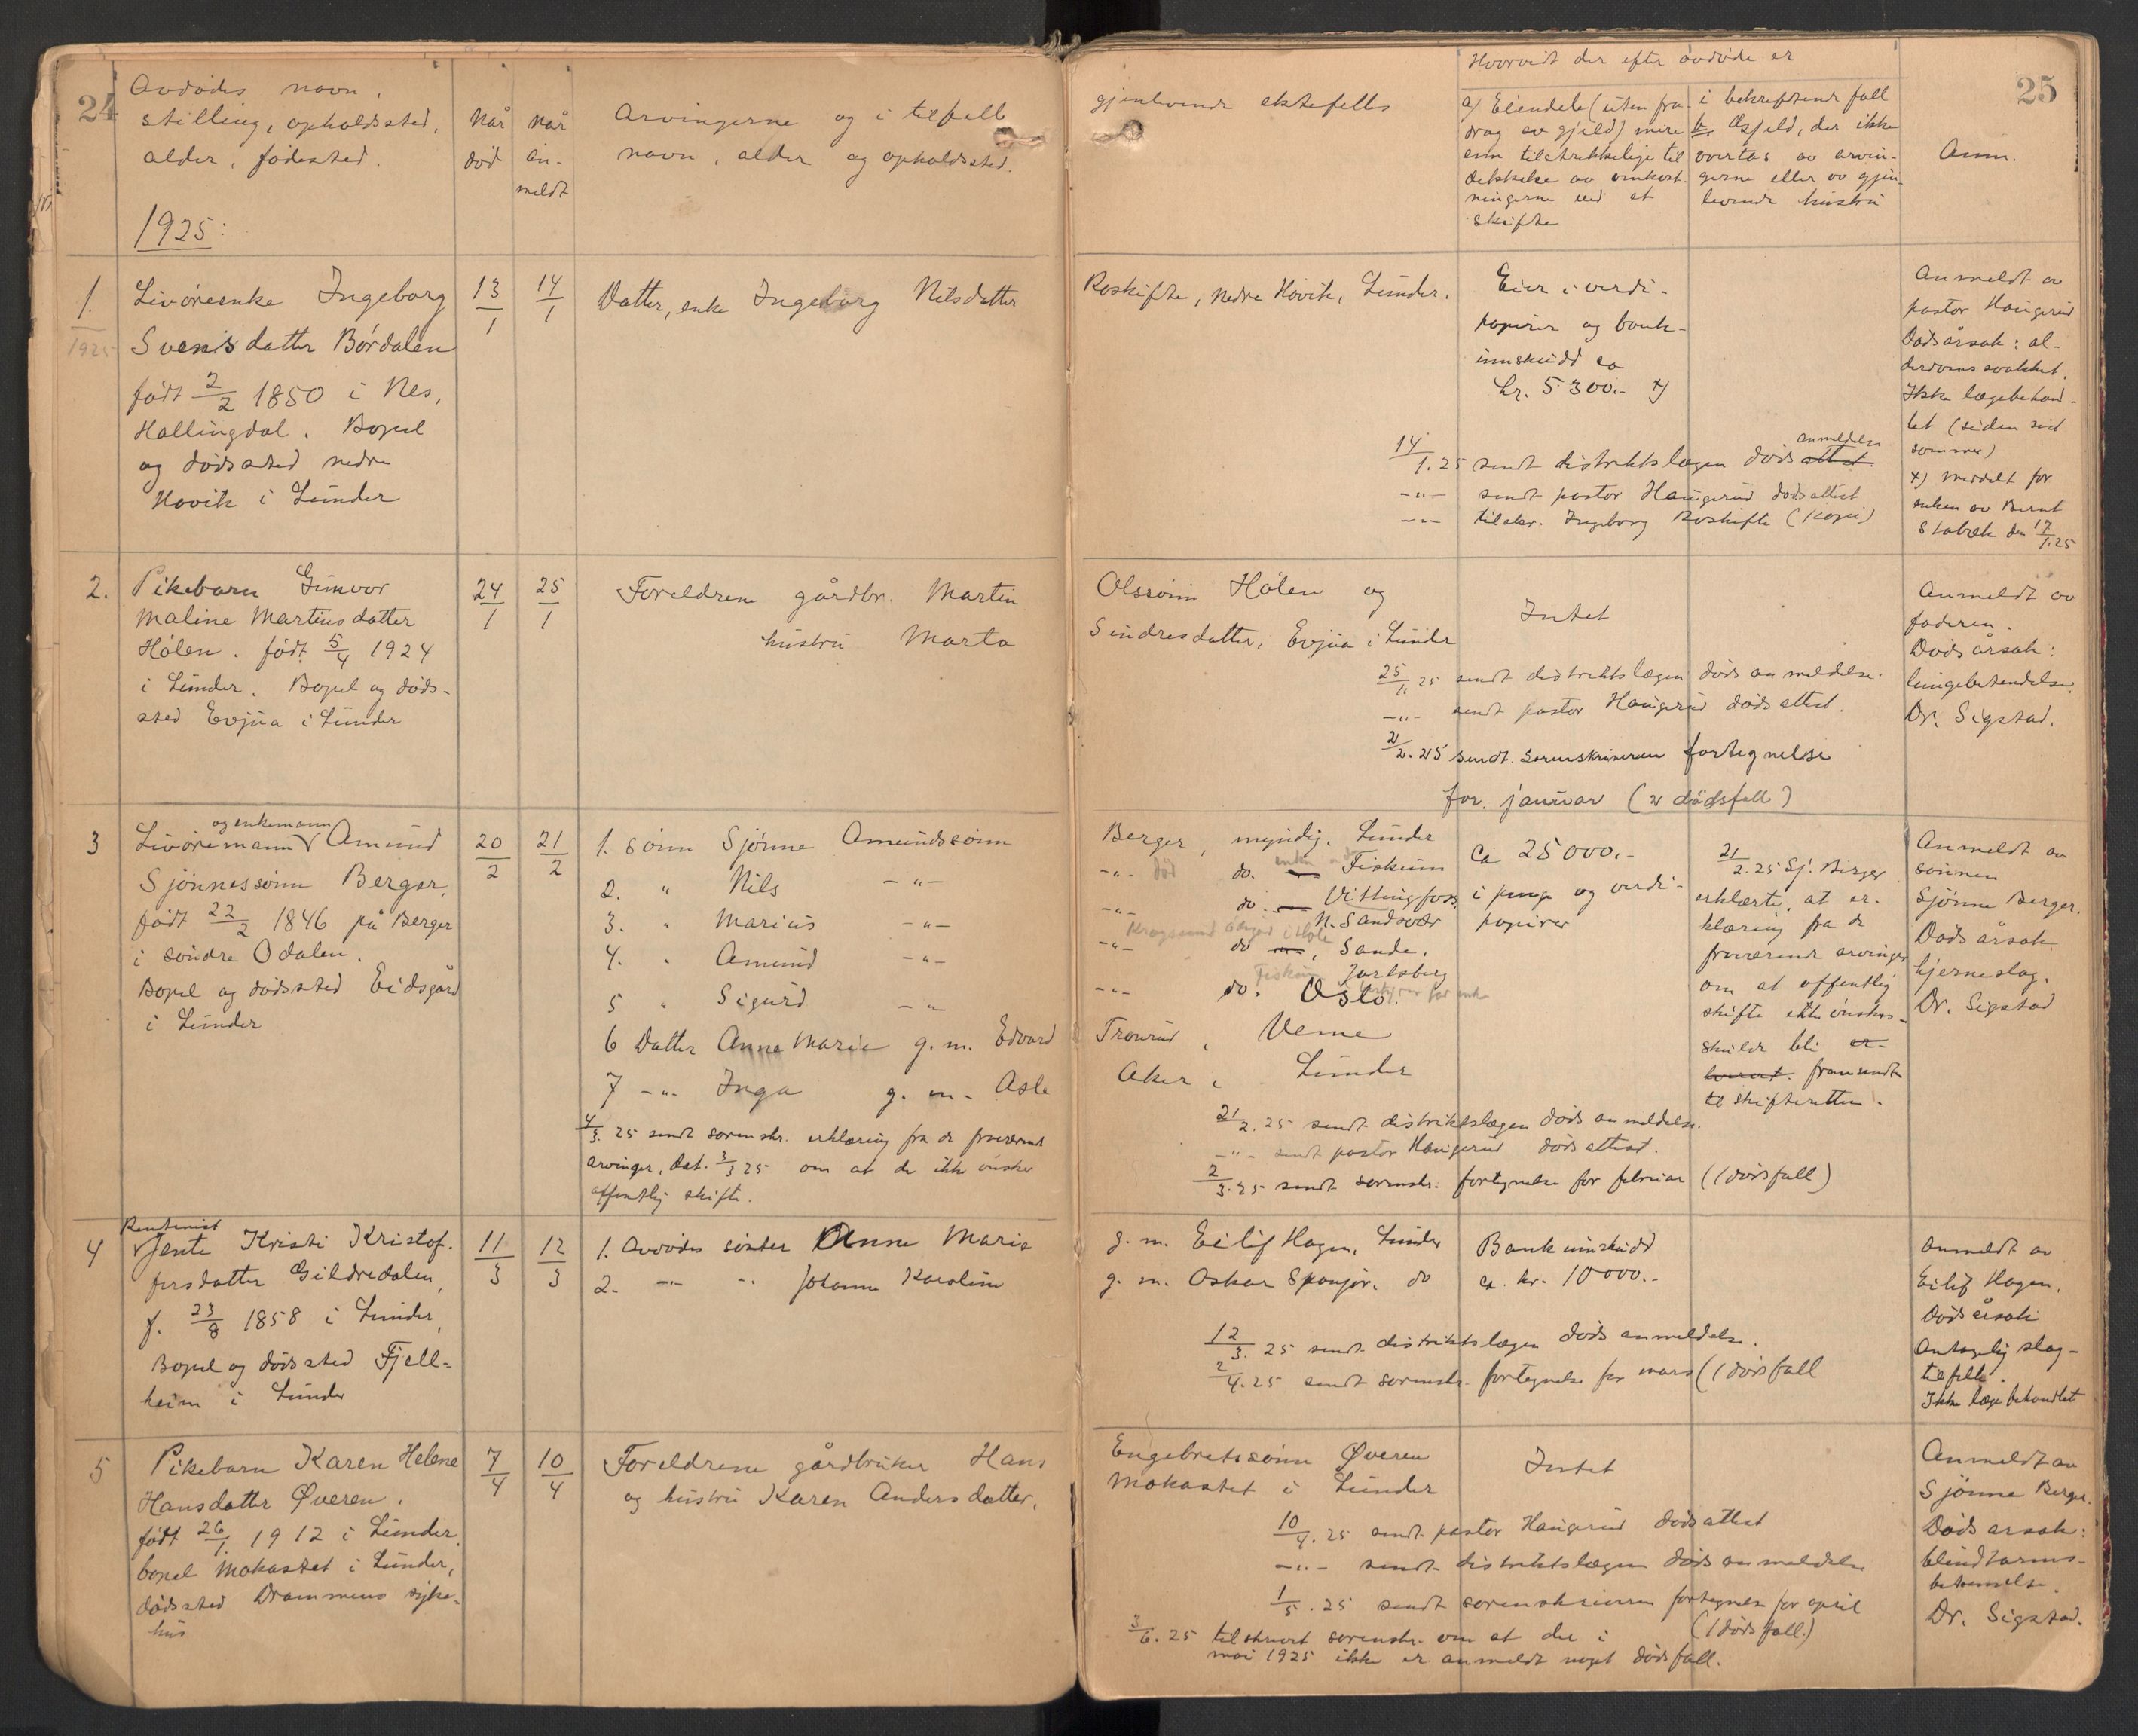 24
Avdødes navn,
stilling, opholdssted,
alder, fødested.
1925:
Når
død
Når
an-
meldt
Arvingerne og i tilfelle
navn, alder og opholdssted.
gjenlevende ektefelles
Hvorvidt der efter avdøde er
a) Eiendele (uten fra-
drag av gjeld) mere
enn tilstrekkelige til
dekkelse av omkost-
ningerne ved et
skifte
i bekreftende fall
b. Gjeld, der ikke
overtas av arvin-
gerne eller av gjen-
levende hustru
Anm.
25
1.
1925
Livøreenke Ingeborg
Svensdatter Børdalen
født 2/2 1850 i Nes,
Hallingdal. Bopel
og dødssted nedre
Hovik i Lunder
13/1
14/1
Datter, enke Ingeborg Nilsdatter
Roskifte, Nedre Hovik, Lunder.
Eier i verdi-
papirer og bank-
innskudd ca
kr. 5300.- x)
14/1.25 sendt distriktslægen døds attest anmeldelse
-"- sendt pastor Haugerud dødsattest
-"- tilskr. Ingeborg Roskifte (Kopi)
Anmeldt av
pastor Haugerud
Dødsårsak: al-
derdomssvakhet.
Ikke lægebehand-
let (siden sist
sommer)
x) meddelt for
enken av Bernt
Stabæk den 17/1.25
2.
Pikebarn Gunvor
Maline Martinsdatter
Hølen. født 5/4 1924
i Lunder. Bopel og døds-
sted Evjua i Lunder
24/1
25/1
Foreldrene gårdbr. Martin
hustru Marta
Olssønn Hølen og
Sindresdatter, Evjua i Lunder
Intet
25/1.25 sendt distriktslægen døds anmeldelse.
-"- sendt pastor Haugerud dødsattest.
2/2.25 sendt sorenskriveren fortegnelse
for januar (2 dødsfall)
Anmeldt av
faderen.
Dødsårsak:
lungebetendelse.
Dr. Sigstad.
3
og enkemann
Livøremann Amund
Sjønnessønn Berger,
født 22/2 1846 på Berger
i søndre Odalen.
Bopel og dødssted Eidsgård
i Lunder
20/2
21/2
1. sønn Sjønne Amundssønn
2. " Nils -"-
3. " Marius -"-
4. " Amund -"-
5 " Sigurd -"-
6 Datter Anne Marie g. m. Edvard
7 -"- Inga g. m. Asle
4/3.25 sendt sorenskr. erklæring fra de fraværende
arvinger, dat. 3/3 25 om at de ikke ønsker
offentlig skifte.
Berger, myndig, Lunder
-"- død do. enke Fiskum
-"- do. Vittingfoss
N. Sandsvær
-"- do Sande.
Jarlsberg
-"- do. Oslo.
Tronrud, Veme
Aker, Lunder
Ca 25000.-
i penge og verdi-
papirer
21/2.25 Sj. Berger
erklærte, at er-
klæring fra de
fraværende arvinger
om at offentlig
skifte ikke ønskes-
skulde bli
framsendt
til skifteretten.
21/2.25 sendt distriktslægen døds anmeldelse.
-"- sendt pastor Haugerud dødsattest.
2/3.25 sendt sorenskr. fortegnelse for februar (1 dødsfall)
Anmeldt av
sønnen
Sjønne Berger.
Dødsårsak:
hjerneslag.
Dr. Sigstad
4
Rentenist
Jente Kristi Kristof-
fersdatter Gildredalen,
f. 23/8 1858 i Lunder,
Bopel og dødssted Fjell-
heim i Lunder
11/3
12/3
1. Avdødes søster Anne Marie
2. -"- -"- Johanne Karoline
g. m. Eilif Hagen, Lunder
g. m. Oskar Sponjør, do
Bankinnskudd
ca. kr. 10000.-
12/3.25 sendt distriktslægen døds anmeldelse.
2/4.25 sendt sorenskr. fortegnelse for mars (1 dødsfall
Anmeldt av
Eilif Hagen.
Dødsårsak
Antagelig slag-
tilfelle.
Ikke lægebehandlet
5
Pikebarn Karen Helene
Hansdatter Øveren.
født 26/1. 1912 i Lunder.
bopel Mokastet i Lunder,
dødssted Drammens syke-
hus
7/4
10/4
Foreldrene gårdbruker Hans
og hustru Karen Andersdatter,
Engebretssønn Øveren
Mokastet i Lunder
Intet
10/4.25 sendt pastor Haugerud dødsattest
-"- sendt distriktslægen døds anmeldelse
1/5.25 sendt sorenskriveren fortegnelse for april
(1 dødsfall.)
3/6.25 tilskrevet sorenskr. om at der i
mai 1925 ikke er anmeldt noget dødsfall.
Anmeldt av
Sjønne Berger.
Dødsårsak:
blindtarms-
betennelse.
Dr. Sigstad.